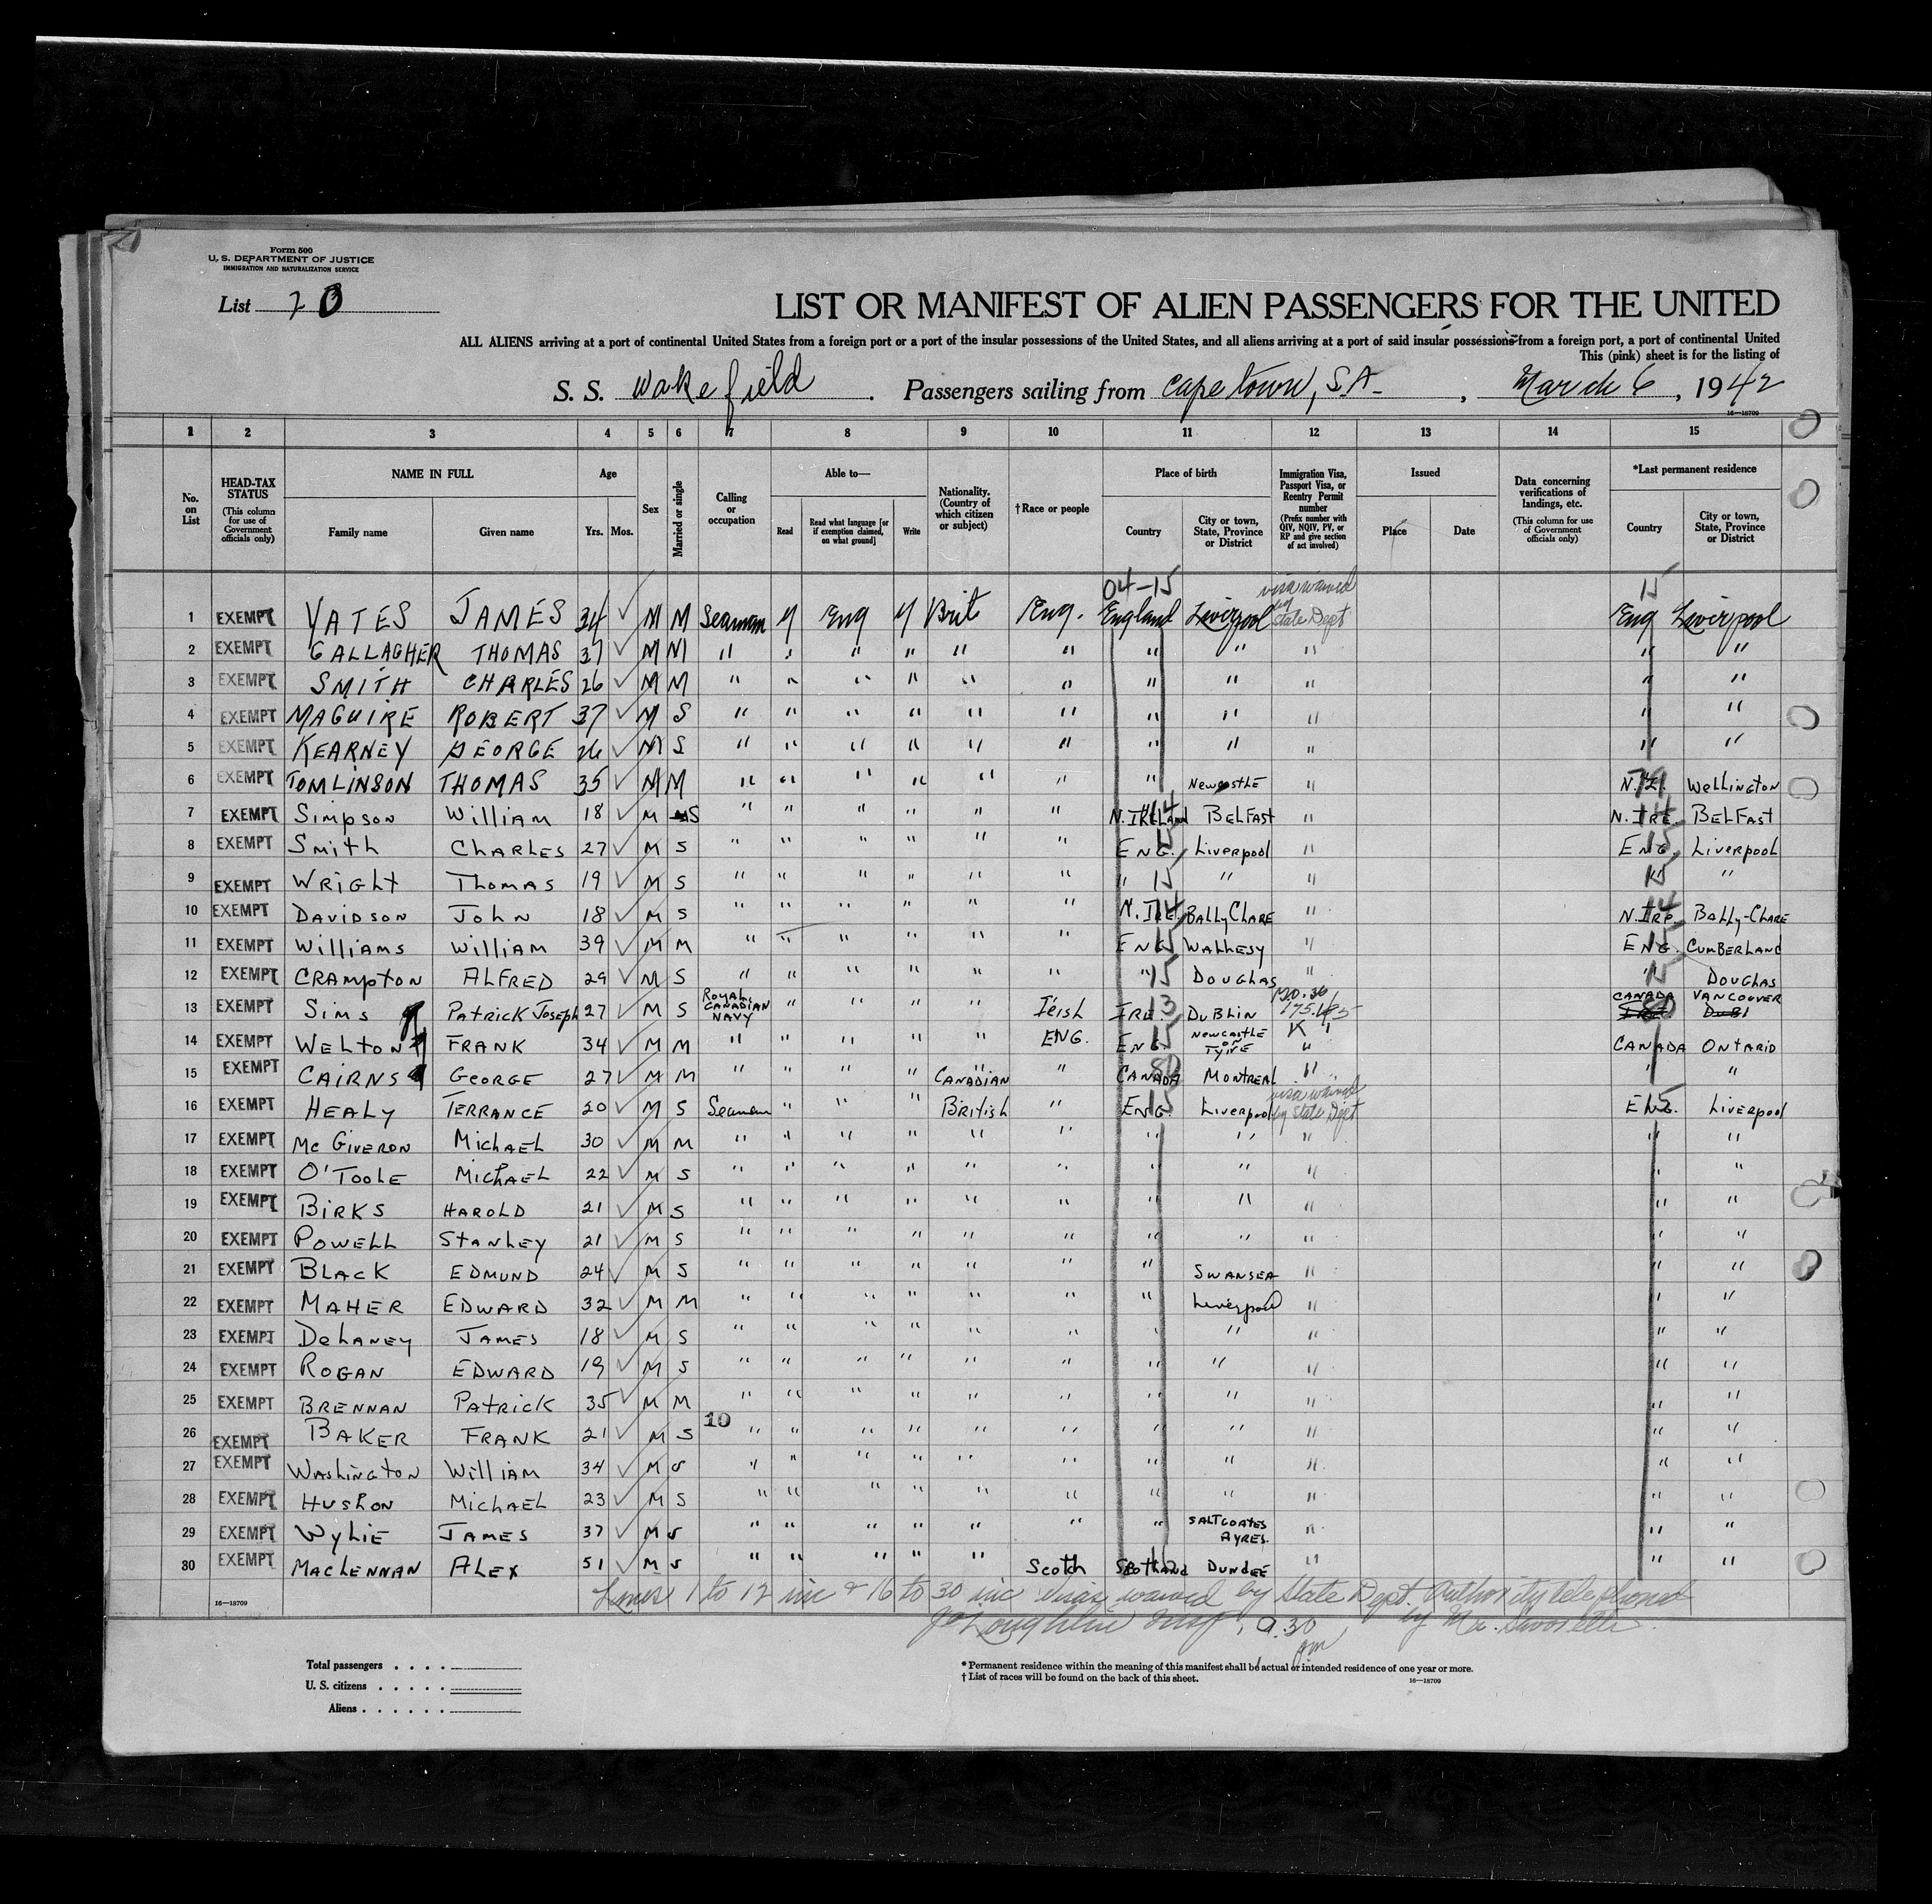 Form 500
U. S. DEPARTMENT OF JUSTICE
IMMIGRATION AND NATURALIZATION SERVICE
List
LIST OR MANIFEST OF ALIEN PASSENGERS FOR THE UNITED
ALL ALIENS arriving at a port of continental United States from a foreign port or a port of the insular possessions of the United States, and all aliens arriving at a port of said insular possessions from a foreign port, a port of continental United
This (pink) sheet is for the listing of
S. S. Wakefield . Passengers sailing from Cape town, S A - , March 6 , 1942
16—18709
1 2 3 4 5 6 7 8 9 10 11 12 13 14 15
No. on List
HEAD-TAX STATUS (This column for use of Government officials only)
NAME IN FULL Family name Given name
Age Yrs. Mos.
Sex
Married or single
Calling or occupation
Able to— Read Read what language [or if exemption claimed, on what ground] Write
Nationality. (Country of which citizen or subject)
† Race or people
Place of birth Country City or town, State, Province or District
Immigration Visa, Passport Visa, or Reentry Permit number (Prefix number with QIV, NQIV, PV, or RP and give section of act involved)
Issued Place Date
Data concerning verifications of landings, etc. (This column for use of Government officials only)
*Last permanent residence Country City or town, State, Province or District
04-15 15
1 EXEMPT YATES JAMES 34 ✓ M M Seaman y Eng y Brit Eng. England Liverpool visa waived by State Dept Eng Liverpool
2 EXEMPT GALLAGHER THOMAS 37 ✓ M M " " " " " " " " " " "
3 EXEMPT SMITH CHARLES 26 ✓ M M " " " " " " " " " " "
4 EXEMPT MAGUIRE ROBERT 37 ✓ M S " " " " " " " " " " "
5 EXEMPT KEARNEY GEORGE 26 ✓ M S " " " " " " " " " " "
6 EXEMPT TOMLINSON THOMAS 35 ✓ M M " " " " " " " Newcastle " N.Z. Wellington
7 EXEMPT Simpson William 18 ✓ M S " " " " " " N. IRELAND 14 BELFAST " N. IRE. 14 BELFAST
8 EXEMPT Smith CHARLES 27 ✓ M S " " " " " " ENG. 15 Liverpool " ENG. 15 Liverpool
9 EXEMPT WRIGHT THOMAS 19 ✓ M S " " " " " " " 15 " " " 15 "
10 EXEMPT DAVIDSON JOHN 18 ✓ M S " " " " " " N. IRE. 14 BALLYCLARE " N. IRE. 14 BALLY-CLARE
11 EXEMPT Williams William 39 ✓ M M " " " " " " ENG 15 WALLESY " ENG. 15 CUMBERLAND
12 EXEMPT CRAMPTON ALFRED 29 ✓ M S " " " " " " " 15 DOUGLAS " " 15 DOUGLAS
13 EXEMPT SIMS PATRICK JOSEPH 27 ✓ M S ROYAL CANADIAN NAVY " " " " Irish IRE. 13 DUBLIN CANADA VANCOUVER
14 EXEMPT WELTON FRANK 34 ✓ M M " " " " " ENG. ENG. 15 NEWCASTLE ON TYNE " CANADA ONTARIO
15 EXEMPT CAIRNS GEORGE 27 ✓ M M " " " " CANADIAN " CANADA 80 MONTREAL " " "
16 EXEMPT HEALY TERRANCE 20 ✓ M S Seaman " " " British " ENG. 15 Liverpool visa waived by State Dept ENG. 15 Liverpool
17 EXEMPT Mc GIVERON MICHAEL 30 ✓ M M " " " " " " " " " " "
18 EXEMPT O'TOOLE MICHAEL 22 ✓ M S " " " " " " " " " " "
19 EXEMPT BIRKS HAROLD 21 ✓ M S " " " " " " " " " " "
20 EXEMPT POWELL STANLEY 21 ✓ M S " " " " " " " " " " "
21 EXEMPT BLACK EDMUND 24 ✓ M S " " " " " " " SWANSEA " " "
22 EXEMPT MAHER EDWARD 32 ✓ M M " " " " " " " Liverpool " " "
23 EXEMPT DELANEY JAMES 18 ✓ M S " " " " " " " " " " "
24 EXEMPT ROGAN EDWARD 19 ✓ M S " " " " " " " " " " "
25 EXEMPT BRENNAN PATRICK 35 ✓ M M " " " " " " " " " " "
26 EXEMPT BAKER FRANK 21 ✓ M S 10 " " " " " " " " " " "
27 EXEMPT WASHINGTON William 34 ✓ M S " " " " " " " " " " "
28 EXEMPT HUSHON MICHAEL 23 ✓ M S " " " " " " " " " " "
29 EXEMPT WYLIE JAMES 37 ✓ M S " " " " " " " SALTCOATES AYRES. " " "
30 EXEMPT MACLENNAN ALEX 51 ✓ M S " " " " " Scotch SCOTLAND DUNDEE " " "
Lines 1 to 12 inc & 16 to 30 inc visas waived by State Dept. Authority telephoned
16—18709
by Mr.
9.30 pm
Total passengers
U. S. citizens
Aliens
* Permanent residence within the meaning of this manifest shall be actual or intended residence of one year or more.
† List of races will be found on the back of this sheet.
16—18709